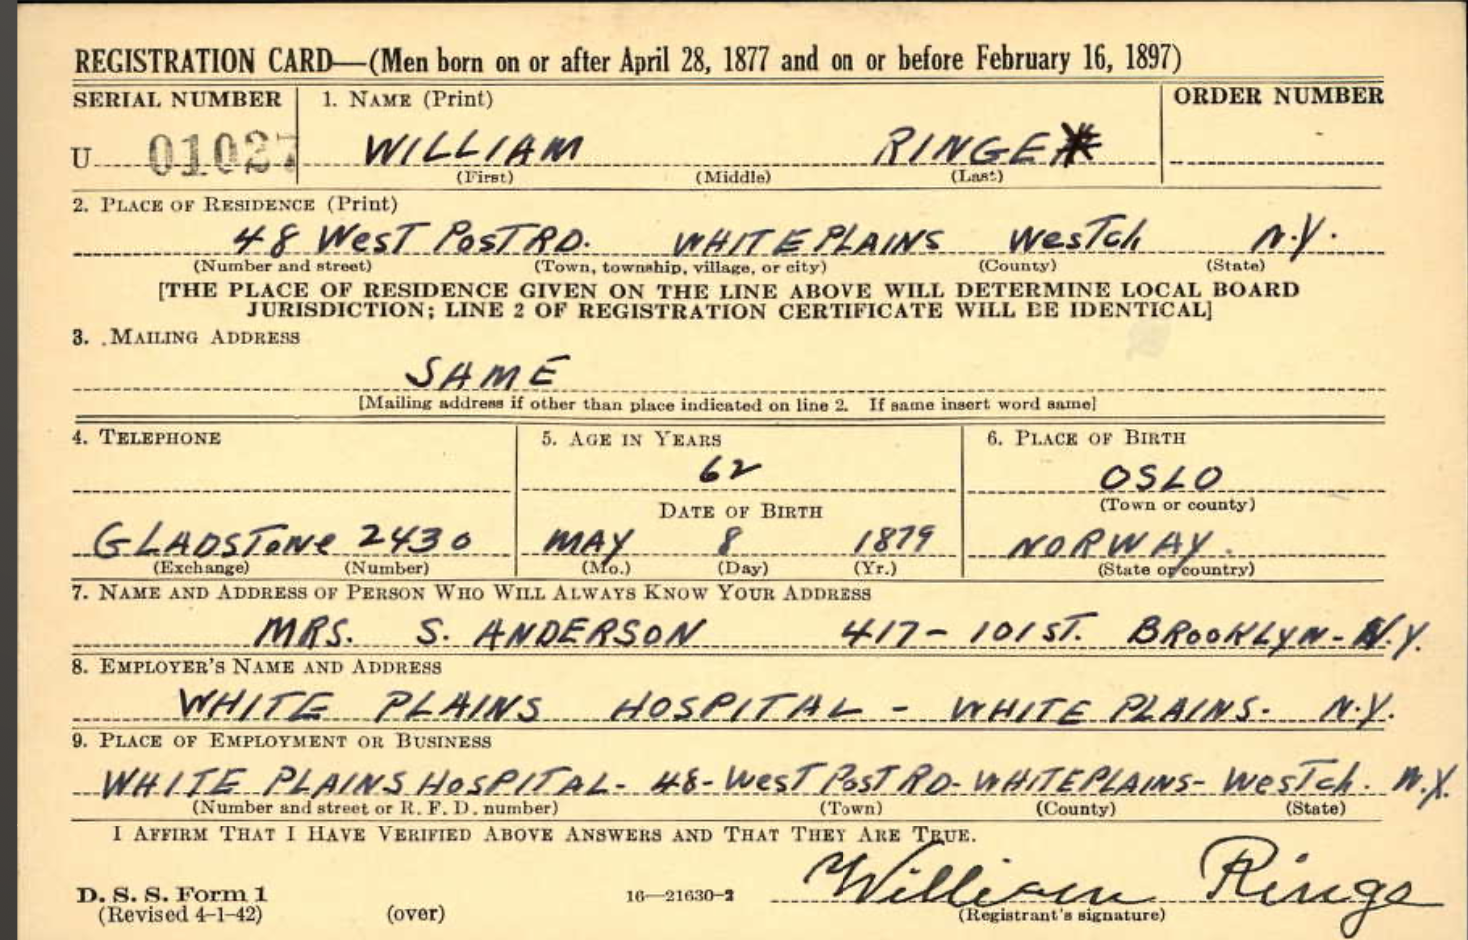 REGISTRATION CARD—(Men born on or after April 28, 1877 and on or before February 16, 1897)
SERIAL NUMBER 1. NAME (Print) ORDER NUMBER
U 01027 WILLIAM RINGE
(First) (Middle) (Last)
2. PLACE OF RESIDENCE (Print)
48 WEST POST RD. WHITE PLAINS WESTch N.Y.
(Number and street) (Town, township, village, or city) (County) (State)
[THE PLACE OF RESIDENCE GIVEN ON THE LINE ABOVE WILL DETERMINE LOCAL BOARD
JURISDICTION; LINE 2 OF REGISTRATION CERTIFICATE WILL BE IDENTICAL]
3. MAILING ADDRESS
SAME
[Mailing address if other than place indicated on line 2. If same insert word same]
4. TELEPHONE 5. AGE IN YEARS 6. PLACE OF BIRTH
62 OSLO
DATE OF BIRTH (Town or county)
GLADSTONE 2430 MAY 8 1879 NORWAY.
(Exchange) (Number) (Mo.) (Day) (Yr.) (State or country)
7. NAME AND ADDRESS OF PERSON WHO WILL ALWAYS KNOW YOUR ADDRESS
MRS. S. ANDERSON 417-101 ST. BROOKLYN- N.Y.
8. EMPLOYER'S NAME AND ADDRESS
WHITE PLAINS HOSPITAL - WHITE PLAINS- N.Y.
9. PLACE OF EMPLOYMENT OR BUSINESS
WHITE PLAINS HOSPITAL- 48-WEST POST RD- WHITE PLAINS- WESTch. N.Y.
(Number and street or R. F. D. number) (Town) (County) (State)
I AFFIRM THAT I HAVE VERIFIED ABOVE ANSWERS AND THAT THEY ARE TRUE.
William Ringe
D. S. S. Form 1 16—21630-2
(Revised 4-1-42) (over) (Registrant's signature)